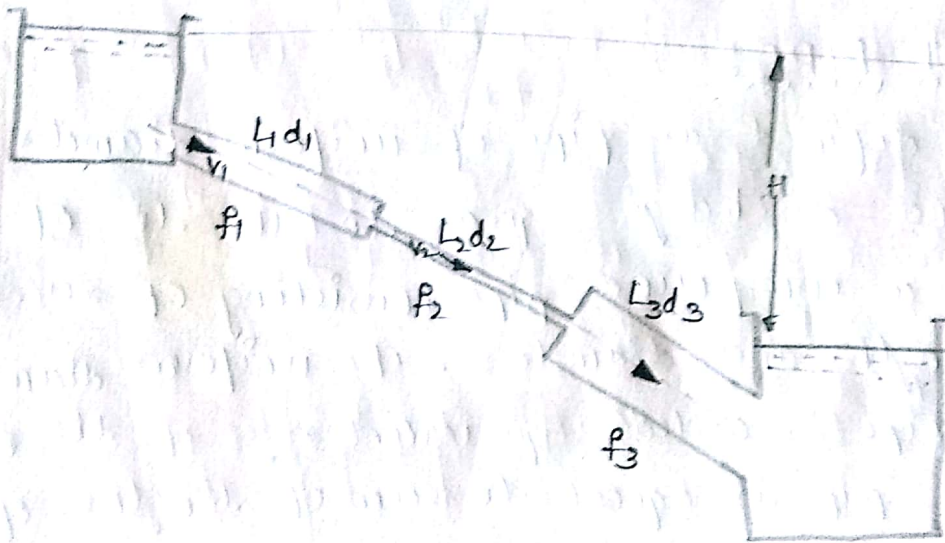 L1 d1
V1
f1
H
L2 d2
V2
f2
L3 d3
f3